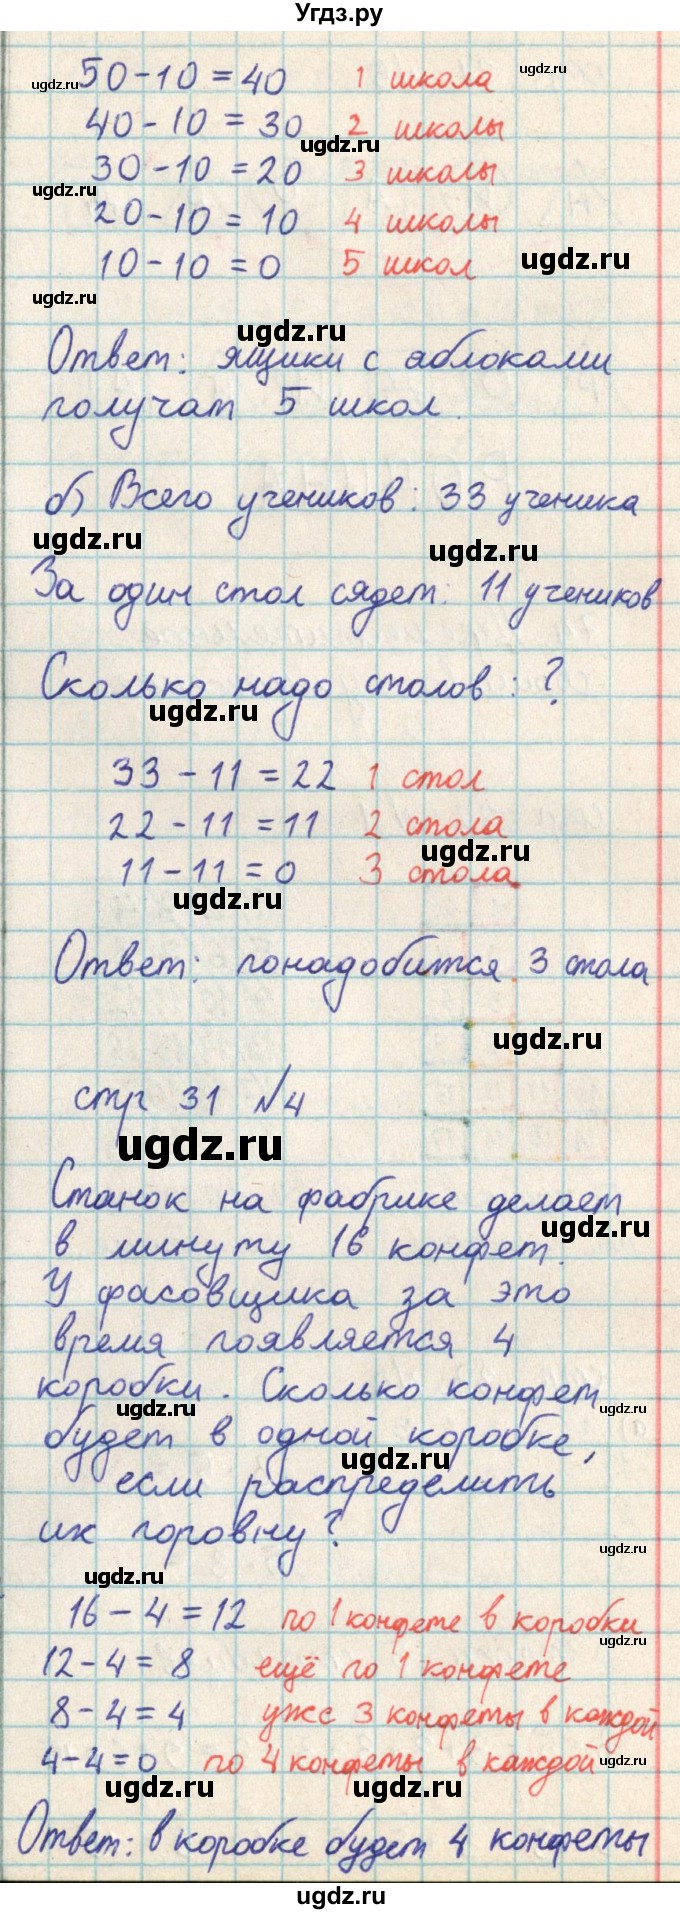 Угдз.ру
50-10=40 1 школа
40-10=30 2 школы
30-10=20 3 школы
20-10=10 4 школы
10-10=0 5 школ
Ответ: ящики с яблоками
получат 5 школ.
б) Всего учеников: 33 ученика
За один стол сядет: 11 учеников
Сколько надо столов: ?
33-11=22 1 стол
22-11=11 2 стола
11-11=0 3 стола
Ответ: понадобится 3 стола
стр 31 №4
Станок на фабрике делает
в минуту 16 конфет.
У фасовщика за это
время появляется 4
коробки. Сколько конфет
будет в одной коробке,
если распределить
их поровну?
16-4=12 по 1 конфете в коробки
12-4=8 ещё по 1 конфете
8-4=4 уже 3 конфеты в каждой
4-4=0 по 4 конфеты в каждой
Ответ: в коробке будет 4 конфеты
ugdz.ru